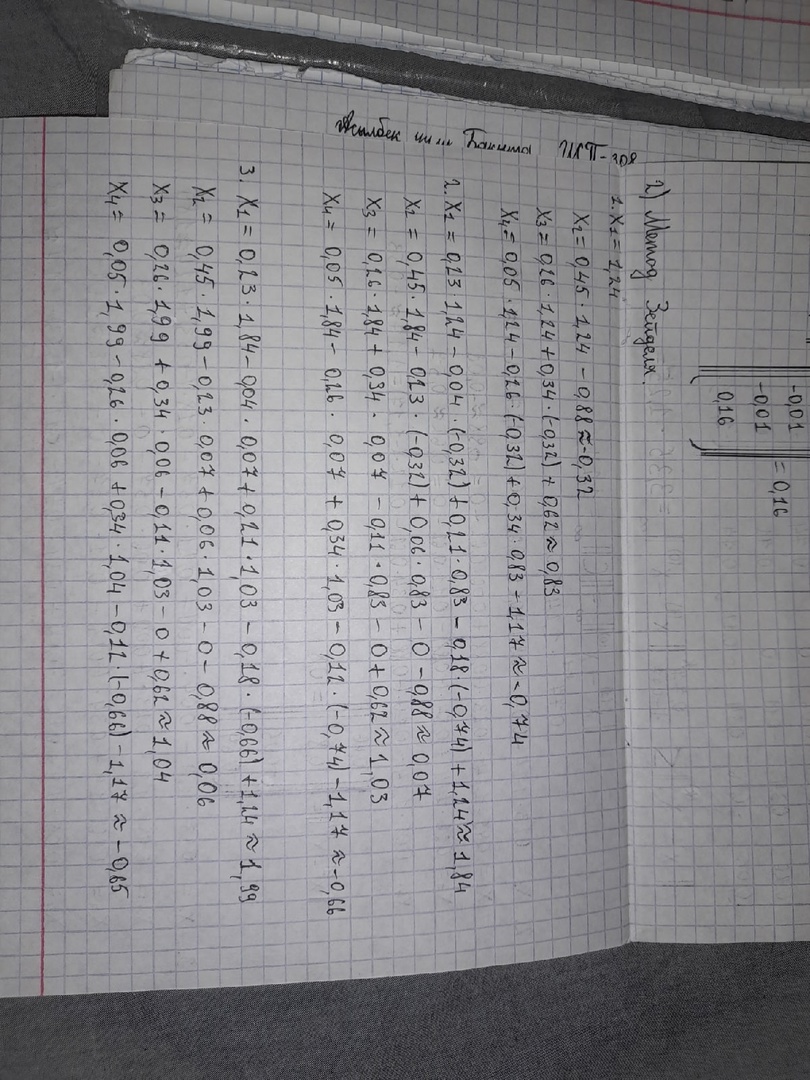 -0,01
-0,01 = 0,16
0,16
ИСТ-308
2) Метод Зейделя.
1. X₁ = 1,24
X₂ = 0,45 · 1,24 - 0,88 ≈ -0,32
X₃ = 0,26 · 1,24 + 0,34 · (-0,32) + 0,62 ≈ 0,83
X₄ = 0,05 · 1,24 - 0,26 · (-0,32) + 0,34 · 0,83 - 1,17 ≈ -0,74
2. X₁ = 0,23 · 1,24 - 0,04 · (-0,32) + 0,21 · 0,83 - 0,18 · (-0,74) + 1,24 ≈ 1,84
X₂ = 0,45 · 1,84 - 0,23 · (-0,32) + 0,06 · 0,83 - 0 - 0,88 ≈ 0,07
X₃ = 0,26 · 1,84 + 0,34 · 0,07 - 0,11 · 0,83 - 0 + 0,62 ≈ 1,03
X₄ = 0,05 · 1,84 - 0,26 · 0,07 + 0,34 · 1,03 - 0,12 · (-0,74) - 1,17 ≈ -0,66
3. X₁ = 0,23 · 1,84 - 0,04 · 0,07 + 0,21 · 1,03 - 0,18 · (-0,66) + 1,24 ≈ 1,99
X₂ = 0,45 · 1,99 - 0,23 · 0,07 + 0,06 · 1,03 - 0 - 0,88 ≈ 0,06
X₃ = 0,26 · 1,99 + 0,34 · 0,06 - 0,11 · 1,03 - 0 + 0,62 ≈ 1,04
X₄ = 0,05 · 1,99 - 0,26 · 0,06 + 0,34 · 1,04 - 0,12 · (-0,66) - 1,17 ≈ -0,65